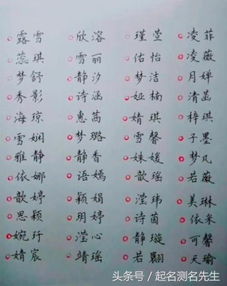 露雪 欣溶 瑾堂 凌菲
蕊琪 雪丽 佑怡 凌薇
梦舒 静汐 梦洁 月婵
秀影 诗涵 娅楠 清菡
海琼 惠茜 婧琪 梓琪
雪娴 梦璐 雪馨 子墨
雅静 静香 姝媛 梦凡
依娜 语嫣 歆瑶 若薇
歆婷 颖娟 滢玮 美琳
思颖 玥婷 诗茵 依米
婉玗 滢心 静璇 可馨
婧宸 靖瑶 若翾 天瑜
头条号 / 起名测名先生